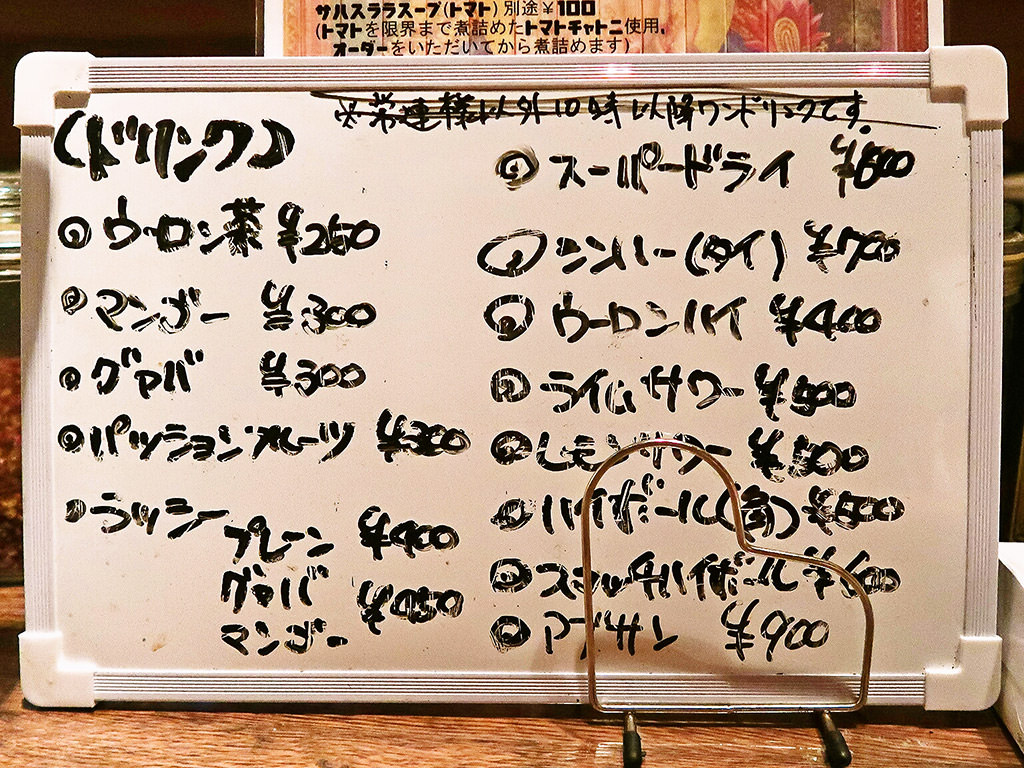 サハスララスープ(トマト)別途¥100
(トマトを限界まで煮詰めたトマトチャトニ使用。
オーダーをいただいてから煮詰めます)
※常連様以外10時以降ワンドリンクです。
(ドリンク)
ウーロン茶 ¥250
マンゴー ¥300
グァバ ¥300
パッションフルーツ ¥300
ラッシー
プレーン ¥400
グァバ ¥450
マンゴー
スーパードライ ¥600
シンハー(タイ) ¥700
ウーロンハイ ¥400
ライムサワー ¥500
レモンサワー ¥500
ハイボール(角) ¥500
スミノフハイボール ¥600
アブサン ¥900